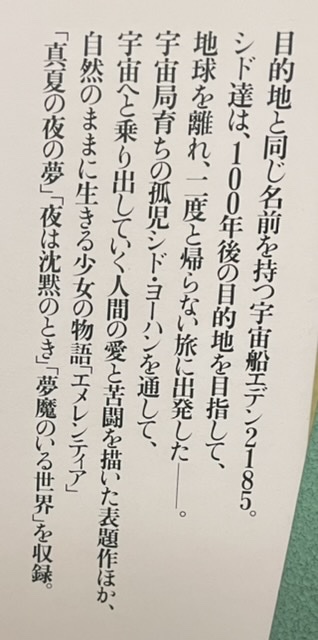 目的地と同じ名前を持つ宇宙船エデン2185。
シド達は、100年後の目的地を目指して、
地球を離れ、二度と帰らない旅に出発した――。
宇宙局育ちの孤児シド・ヨーハンを通して、
宇宙へと乗り出していく人間の愛と苦闘を描いた表題作ほか、
自然のままに生きる少女の物語「エメレンティア」
「真夏の夜の夢」「夜は沈黙のとき」「夢魔のいる世界」を収録。